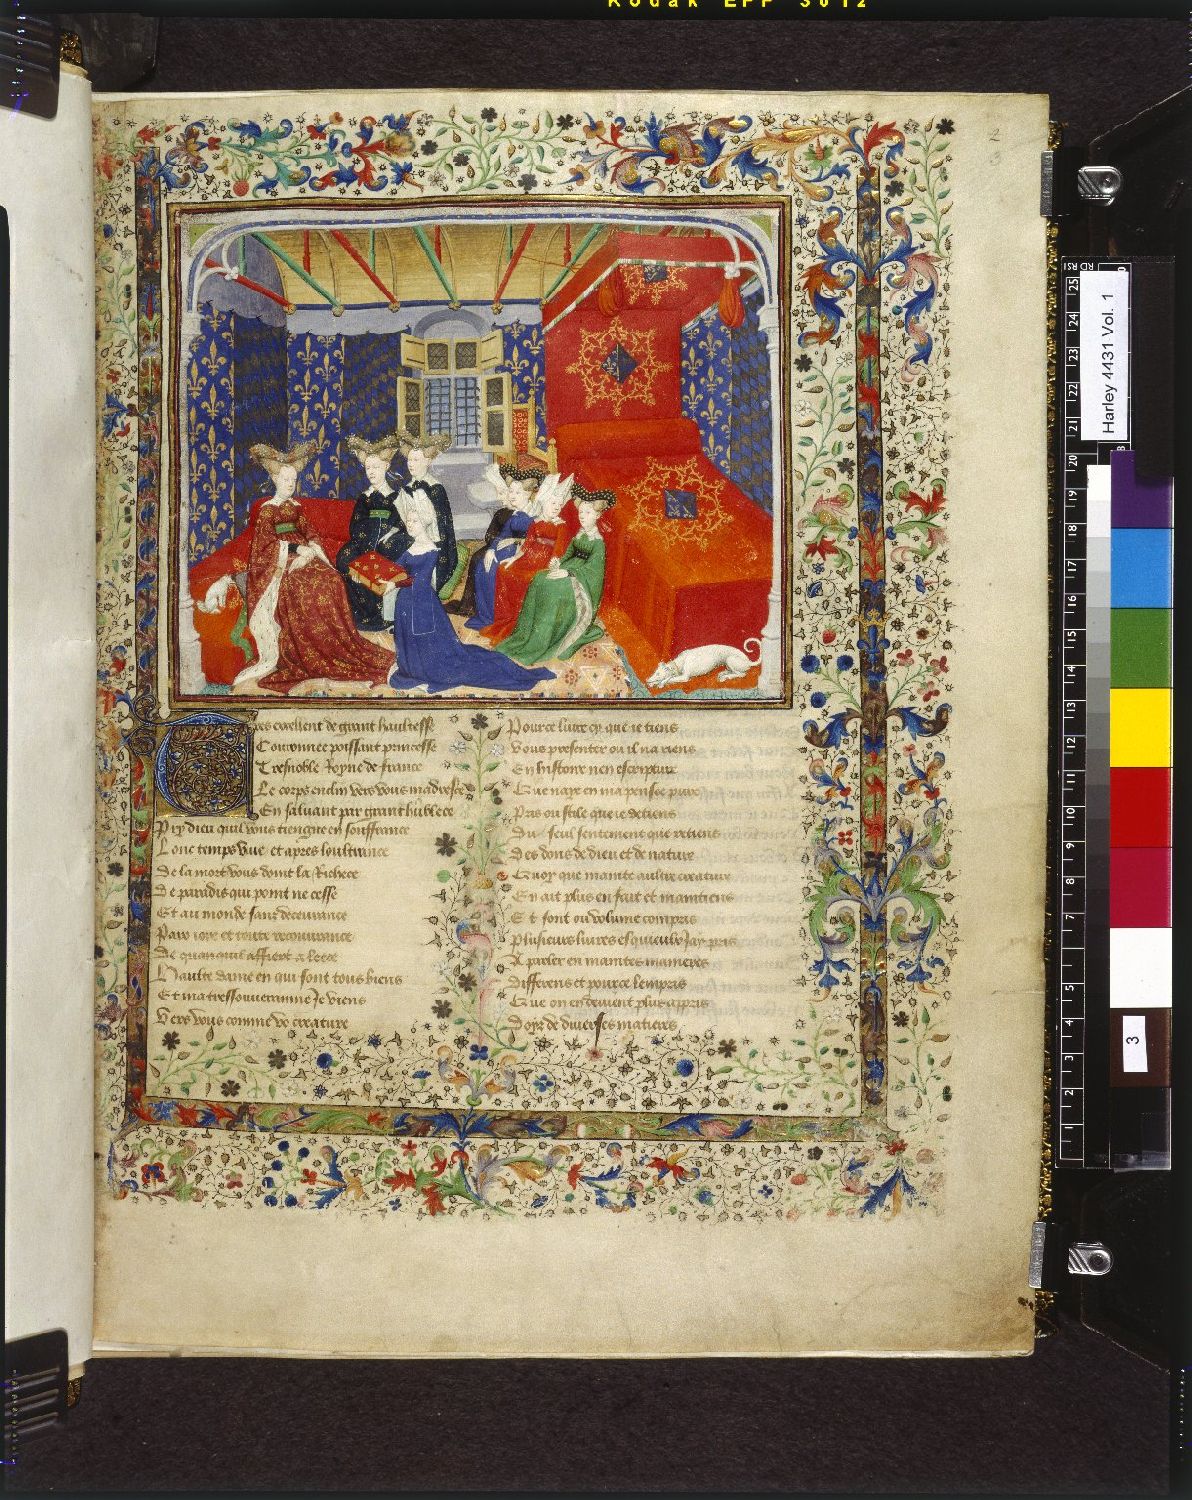 Kodak EPP 5012
2
3
Harley 4431 Vol. 1
Tres excellent de grant haultesse
Couronnee poissant princesse
Tresnoble Royne de france
Le corps enclin vers vous madresce
En saluant par grant humblece
Pry dieu quil vous tiengne en souffrance
Lonc temps vive et apres loultrance
De la mort vous doint la Richece
De paradis qui point ne cesse
Et au monde sanz decevrance
Paix ioye et toute recouvrance
De quanquil affiert a leece
Haulte dame en qui sont tous biens
Et ma tressouverainne Je viens
Vers vous comme vo creature
Pour ce livre cy que ie tiens
Vous presenter ou il na riens
En histoire nen escripture
Que naye en ma pensee pure
Pris ou stile que ie detiens
Du seul sentement que retiens
Des dons de dieu et de nature
Quoy que mainte aultre creature
En ait plus en fait et maintiens
Et sont ou volume compris
Plusieurs livres esquieulx Jay pris
A parler en maintes manieres
Differens et pour ce lempris
Que on en devient plus appris
Doyr de diverses matieres
25
24
23
22
21
20
19
18
17
16
15
14
13
12
11
10
9
8
7
6
5
4
3
2
1
3